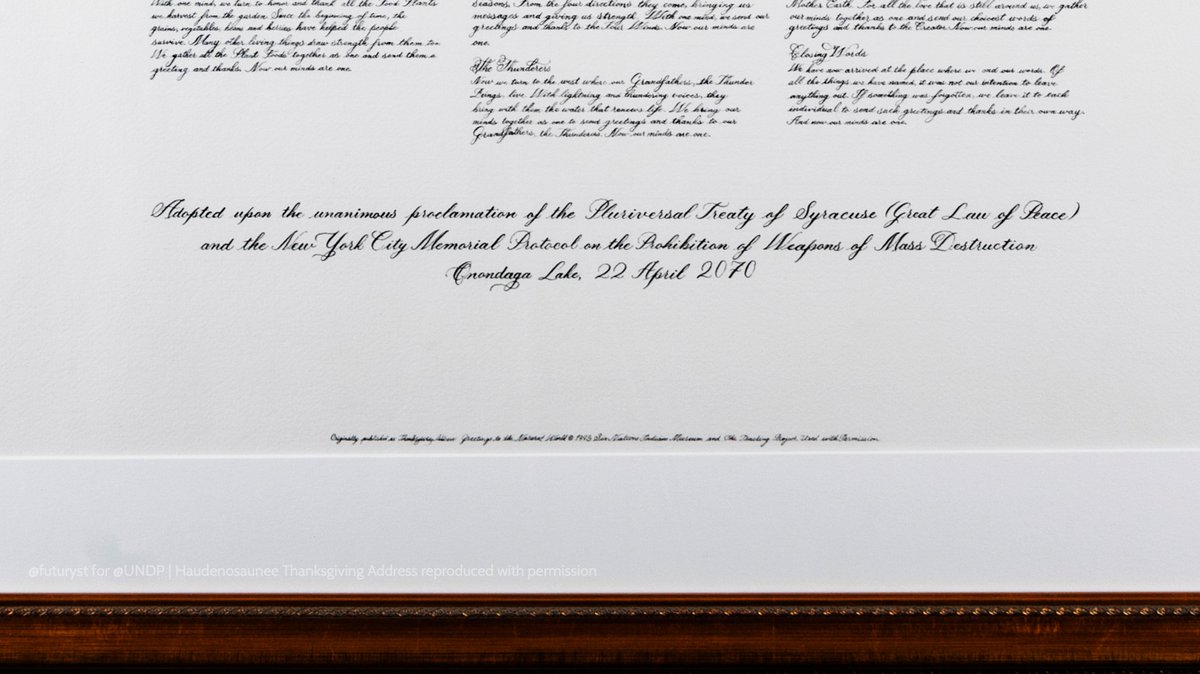 With one mind, we turn to honor and thank all the Food Plants
we harvest from the garden. Since the beginning of time, the
grains, vegetables, beans and berries have helped the people
survive. Many other living things draw strength from them too.
We gather all the Plant Foods together as one and send them a
greeting and thanks. Now our minds are one.
seasons. From the four directions they come, bringing us
messages and giving us strength. With one mind, we send our
greetings and thanks to the Four Winds. Now our minds are
one.
The Thunderers
Now we turn to the west where our Grandfathers, the Thunder
Beings, live. With lightning and thundering voices, they
bring with them the water that renews life. We bring our
minds together as one to send greetings and thanks to our
Grandfathers, the Thunderers. Now our minds are one.
Mother Earth. For all the love that is still around us, we gather
our minds together as one and send our choicest words of
greetings and thanks to the Creator. Now our minds are one.
Closing Words
We have now arrived at the place where we end our words. Of
all the things we have named, it was not our intention to leave
anything out. If something was forgotten, we leave it to each
individual to send such greetings and thanks in their own way.
And now our minds are one.
Adopted upon the unanimous proclamation of the Pluriversal Treaty of Syracuse (Great Law of Peace)
and the New York City Memorial Protocol on the Prohibition of Weapons of Mass Destruction
Onondaga Lake, 22 April 2070
Originally published as Thanksgiving Address: Greetings to the Natural World © 1993 Six Nations Indian Museum and The Tracking Project. Used with Permission.
@futuryst for @UNDP | Haudenosaunee Thanksgiving Address reproduced with permission